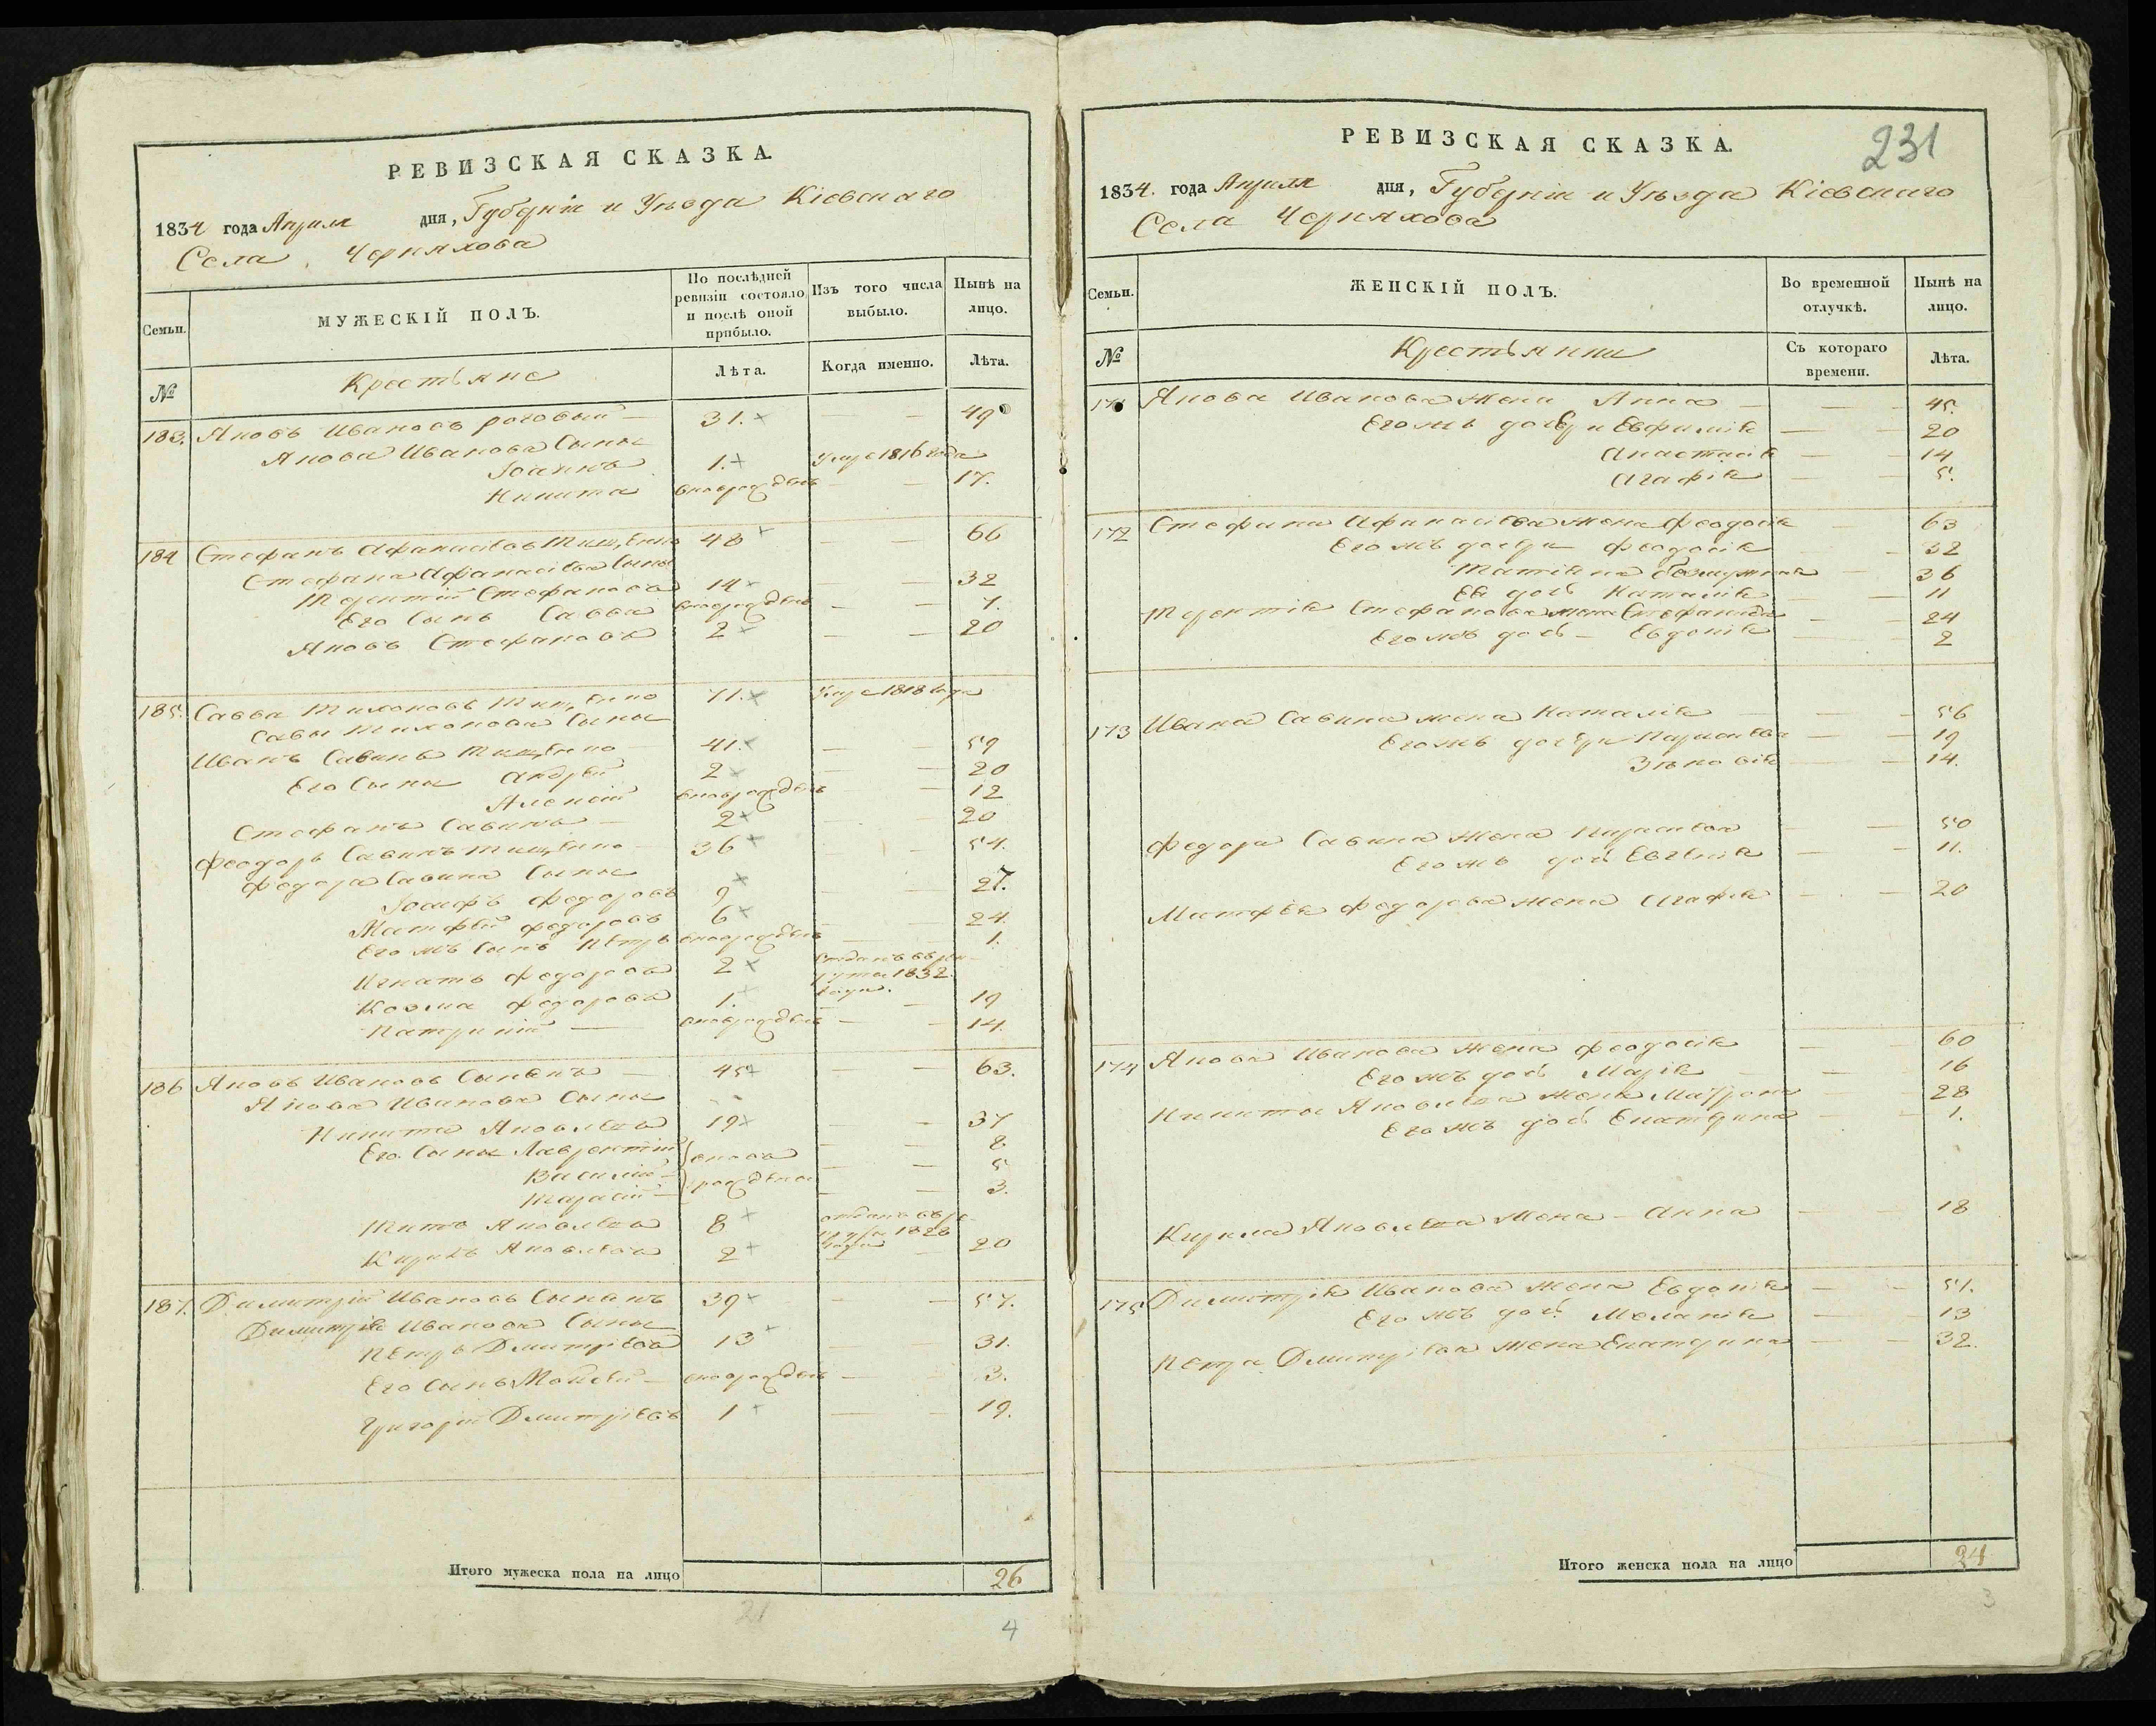 РЕВИЗСКАЯ СКАЗКА.
1834 года Апреля дня, Губерніи и Уѣзда Кіевскаго
Села Черняхова
Семьи.
МУЖЕСКІЙ ПОЛЪ.
По послѣдней ревизіи состояло и послѣ оной прибыло.
Изъ того числа выбыло.
Нынѣ на лицо.
№
Крестьяне
Лѣта.
Когда именно.
Лѣта.
183. Яковъ Ивановъ роговый — 31. — — 49
Якова Иванова Сыны
Іоаннъ 1. умре 1816 года
Никита вновьрожденъ — — 17.
184 Стефанъ Афанасіевъ 48 — — 66
Стефана Афанасіева Сыны
Терентій Стефановъ 14 — — 32
Его Сынъ Савва вновьрожденъ — — 7.
Яковъ Стефановъ 2 — — 20
185. Савва Тихоновъ 71. умре 1818 года
Савы Тихонова Сыны
Иванъ Савинъ 41. — — 59
Его Сыны Андрей 2 — — 20
Алексій вновьрожденъ — 12
Стефанъ Савинъ — 2 — — 20
Феодоръ Савинъ 36 — — 54.
Федора Савина Сыны
Іосифъ Федоровъ 9 — — 27.
Матфей Федоровъ 6 — — 24.
Его жъ Сынъ Петръ вновьрожденъ — — 1.
Игнатъ Федоровъ 2 отданъ въ рекруты 1832 года.
Козма Федоровъ 1. — — 19
Патрикій — вновьрожденъ — — 14.
186 Яковъ Ивановъ 45 — — 63.
Якова Иванова Сыны
Никита Яковлевъ 19 — — 37
Его Сыны Лаврентій вновь — — 8
Василій — рожденые — — 5
Тарасій — — — 3.
Титъ Яковлевъ 8 отданъ въ рекруты 1828 года
Кирилъ Яковлевъ 2 — 20
187. Димитрій Ивановъ 39 — — 57.
Димитрія Иванова Сыны
Петръ Дмитріевъ 13 — — 31.
Его Сынъ Мойсей — вновьрожденъ — — 3.
Григорій Дмитріевъ 1 — — 19.
Итого мужеска пола на лицо 26
21
4
РЕВИЗСКАЯ СКАЗКА.
231
1834. года Апреля дня, Губерніи и Уѣзда Кіевскаго
Села Черняхова
Семьи.
ЖЕНСКІЙ ПОЛЪ.
Во временной отлучкѣ.
Нынѣ на лицо.
№
Крестьянки
Съ котораго времени.
Лѣта.
171 Якова Иванова жена Анна — — 45.
Его жъ дочери Евфимія — — 20
Анастасія — — 14
Агафія — — 5.
172 Стефана Афанасіева жена Феодосія 63
Его жъ дочери Феодосія — 32
Татіяна — 36
Ея дочь Наталія — — 11
Терентія Стефанова жена Стефанида — — 24
Его жъ дочь — Евдокія — — 2
173 Ивана Савина жена Наталія — — 56
Его жъ дочери — — 19
Зѣновія — — 14.
Федора Савина жена — — 50
Его жъ дочь Евгенія — — 11.
Матфея Федорова жена Агафія — — 20
174 Якова Иванова жена Феодосія — — 60
Его жъ дочь Марія — — 16
Никиты Яковлева жена — — 28
Его жъ дочь Екатерина — — 1.
Кирила Яковлева жена — Анна — — 18
175 Димитрія Иванова жена Евдокія — — 51.
Его жъ дочь Меланія — — 13
Петра Дмитріева жена Екатерина — — 32.
Итого женска пола на лицо 24
3